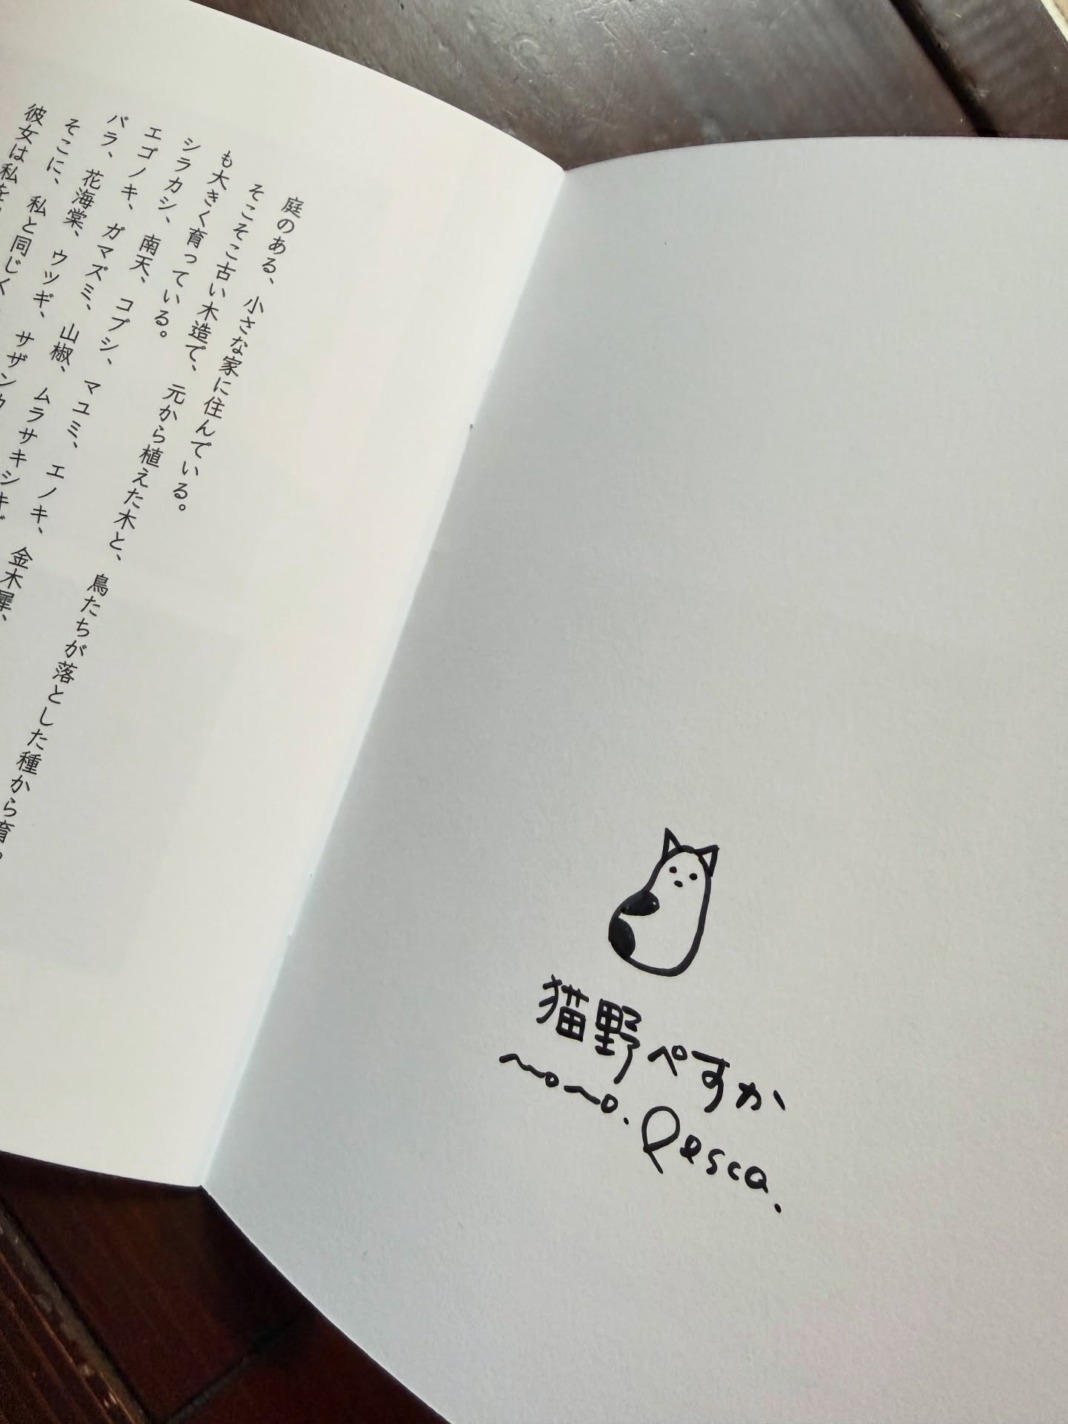 庭のある、小さな家に住んでいる。
そこそこ古い木造で、元から植えた木と、鳥たちが落とした種から育
も大きく育っている。
シラカシ、南天、コブシ、マユミ、エノキ、金木犀、
エゴノキ、ガマズミ、山椒、ムラサキシキブ
バラ、花海棠、ウツギ、サザンカ
そこに、私と同じく
彼女は私を
猫野ぺすか
Pesca.